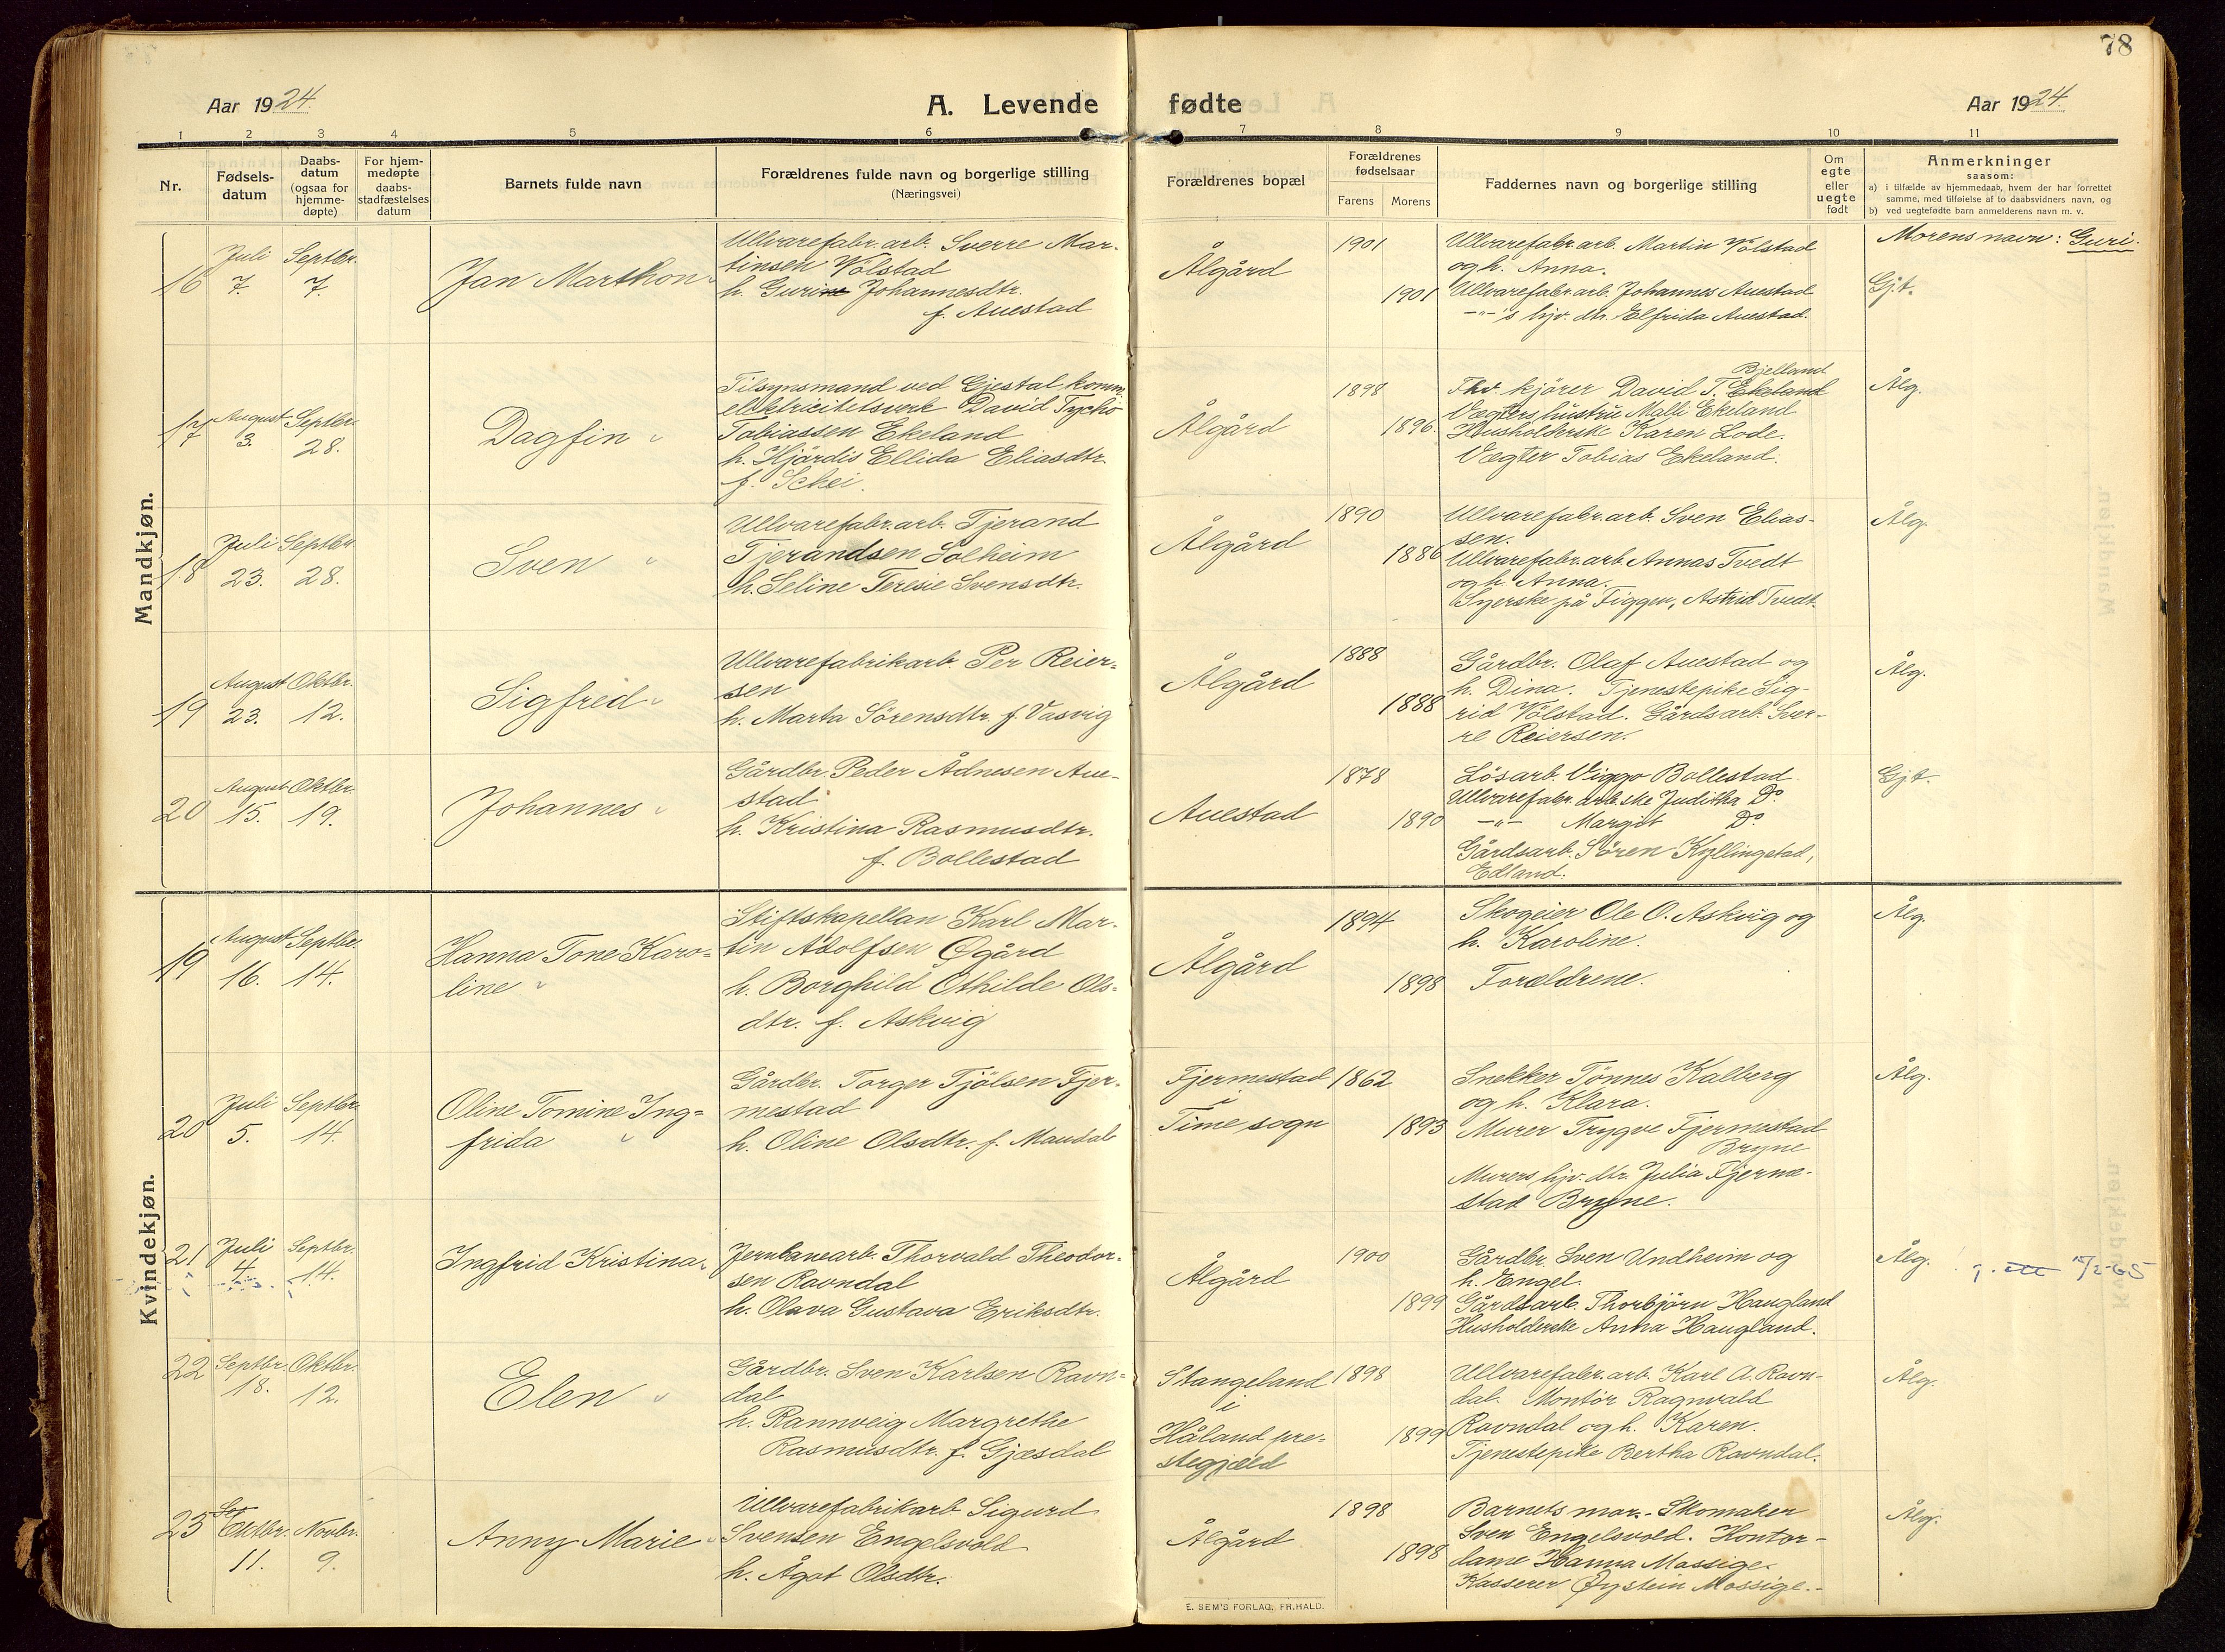 78
Aar 1924.
A. Levende fødte
Aar 1924.
1 2 3 4 5 6 7 8 9 10 11
Nr.
Fødsels-
datum
Daabs-
datum
(ogsaa for
hjemme-
døpte)
For hjem-
medøpte
daabs-
stadfæstelses
datum
Barnets fulde navn
Forældrenes fulde navn og borgerlige stilling
(Næringsvei)
Forældrenes bopæl
Forældrenes
fødselsaar
Farens Morens
Faddernes navn og borgerlige stilling
Om
egte
eller
uegte
født
Anmerkninger
saasom:
a) i tilfælde av hjemmedaab, hvem der har forrettet
samme, med tilføielse av to daabsvidners navn, og
b) ved uegtefødte barn anmelderens navn m. v.
Mandkjøn.
16
Juli
7.
Septbr.
7.
Jan Marthon
Ullvarefabr. arb. Sverre Mar-
tinsen Wölstad
h. Gurine Johannesdtr.
f. Auestad
Ålgård
1901
1901
Ullvarefabr. arb. Martin Wölstad
og h. Anna.
Ullvarefabr. arb. Johannes Auestad
—"—'s hjv. dtr. Elfrida Auestad.
Morens navn: Guri.
Gjt.
17
August
3.
Septbr.
28.
Dagfin
Tilsynsmand ved Gjestal komm.
elektricitetsverk David Tycho
Tobiassen Ekeland
h. Hjördis Ellida Eliasdtr.
f. Schei.
Ålgård
1898
1896.
Bjelland
Fhv. kjörer David T. Ekeland
Vægters hustru Malli Ekeland
Husholderske Karen Lode.
Vægter Tobias Ekeland.
Ålg.
18
Juli
23.
Septbr.
28.
Sven
Ullvarefabr. arb. Tjerand
Tjerandsen Solheim
h. Seline Teresie Svensdtr.
Ålgård
1890
1886
Ullvarefabr. arb. Sven Elias-
sen.
Ullvarefabr. arb. Annas Tvedt
og h. Anna.
Syerske på Figgen, Astrid Tvedt.
Ålg.
19
August
23.
Oktbr.
12.
Sigfred
Ullvarefabrikarb. Per Reier-
sen
h. Marta Sörensdtr. f. Vasvig
Ålgård
1888
1888
Gårdbr. Olaf Auestad og
h. Dina. Tjenestepike Sig-
rid Wölstad. Gårdsarb. Sver-
re Reiersen.
Ålg.
20
August
15.
Oktbr.
19.
Johannes
Gårdbr. Peder Ådnesen Aue-
stad
h. Kristina Rasmusdtr.
f. Bollestad
Auestad
1878
1890
Lösarb. Viggo Bollestad.
Ullvarefabr. arb.ske Juditha Do.
—"— Margit Do
Gårdsarb. Sören Kyllingstad,
Edland.
Gjt.
Kvindekjøn.
19
August
16.
Septbr.
14.
Hanna Tone Karo-
line
Stiftskapellan Karl Mar-
tin Adolfsen Øgård
h. Borghild Othilde Ols-
dtr. f. Askvig
Ålgård
1894
1898
Skogeier Ole O. Askvig og
h. Karoline.
Forældrene.
Ålg.
20
Juli
5.
Septbr.
14.
Oline Tomine Ing-
frida
Gårdbr. Torger Tjölsen Fjer-
mestad
h. Oline Olsdtr. f. Maudal
Fjermestad
i
Time sogn
1862
1893
Snekker Tönnes Kalberg
og h. Klara.
Murer Trygve Fjermestad
Bryne
Murers hjv. dtr. Julia Fjerme-
stad Bryne.
Ålg.
21
Juli
4.
Septbr.
14.
Ingfrid Kristina
Jernbanearb. Thorvald Theodor-
sen Ravndal
h. Olava Gustava Eriksdtr.
Ålgård
1900
1899
Gårdbr. Sven Undheim og
h. Engel.
Gårdsarb. Thorbjörn Haugland
Husholderske Anna Haugland.
Ålg.
22
Septbr.
18.
Oktbr.
12.
Elen
Gårdbr. Sven Karlsen Ravn-
dal
h. Rannveig Margrethe
Rasmusdtr. f. Gjesdal
Stangeland
i
Håland pre-
stegjeld
1898
1899
Ullvarefabr. arb. Karl A. Ravn-
dal. Montör Ragnvald
Ravndal og h. Karen.
Tjenestepike Bertha Ravndal.
Ålg.
23
Oktbr.
11.
Novbr.
9.
Anny Marie
Ullvarefabrikarb. Sigurd
Svensen Engelsvold
h. Ågot Olsdtr.
Ålgård
1898
1898
Barnets mor.- Skomaker
Sven Engelsvold. Kontor-
dame Hanna Mossige.
Kasserer Øystein Mossige.-
Ålg.
E. SEM'S FORLAG, FR.HALD.